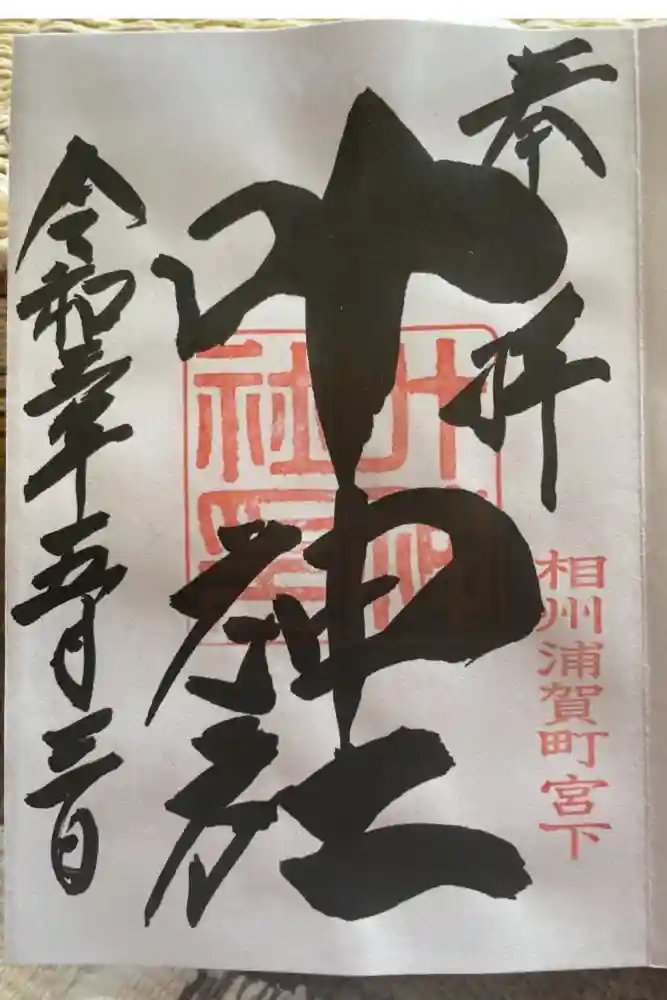 奉拝
相州浦賀町宮下
叶神社
叶神
社印
令和三年五月三日